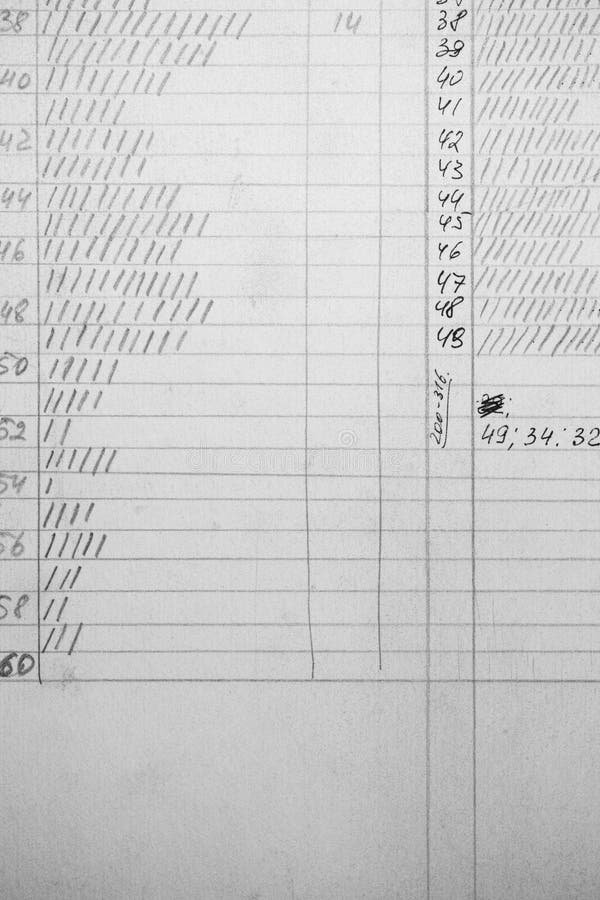 38 14
40
42
44
46
48
50
52
54
56
58
60
38
39
40
41
42
43
44
45
46
47
48
49
200-316.
49; 34: 32
dreamstime.com